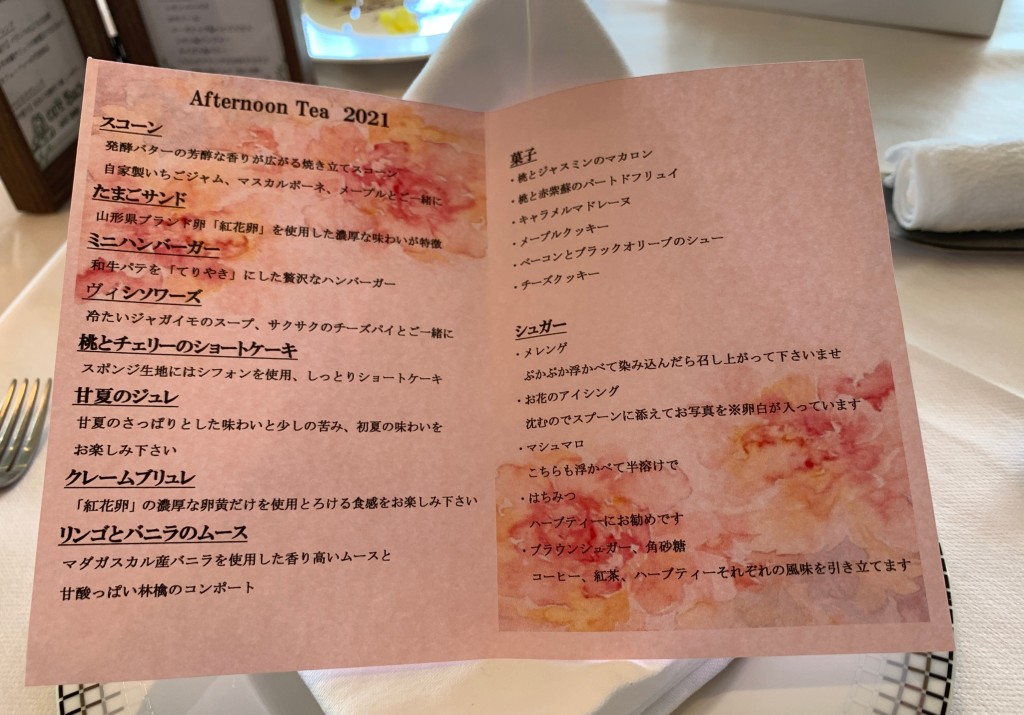 Afternoon Tea 2021
スコーン
発酵バターの芳醇な香りが広がる焼き立てスコーン
自家製いちごジャム、マスカルポーネ、メープルとご一緒に
たまごサンド
山形県ブランド卵「紅花卵」を使用した濃厚な味わいが特徴
ミニハンバーガー
和牛パテを「てりやき」にした贅沢なハンバーガー
ヴィシソワーズ
冷たいジャガイモのスープ、サクサクのチーズパイとご一緒に
桃とチェリーのショートケーキ
スポンジ生地にはシフォンを使用、しっとりショートケーキ
甘夏のジュレ
甘夏のさっぱりとした味わいと少しの苦み、初夏の味わいを
お楽しみ下さい
クレームブリュレ
「紅花卵」の濃厚な卵黄だけを使用とろける食感をお楽しみ下さい
リンゴとバニラのムース
マダガスカル産バニラを使用した香り高いムースと
甘酸っぱい林檎のコンポート
菓子
・桃とジャスミンのマカロン
・桃と赤紫蘇のパートドフリュイ
・キャラメルマドレーヌ
・メープルクッキー
・ベーコンとブラックオリーブのシュー
・チーズクッキー
シュガー
・メレンゲ
ぷかぷか浮かべて染み込んだら召し上がって下さいませ
・お花のアイシング
沈むのでスプーンに添えてお写真を※卵白が入っています
・マシュマロ
こちらも浮かべて半溶けで
・はちみつ
ハーブティーにお勧めです
・ブラウンシュガー、角砂糖
コーヒー、紅茶、ハーブティーそれぞれの風味を引き立てます